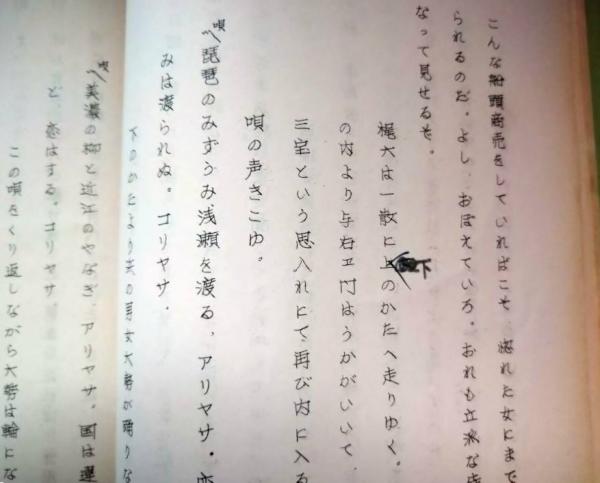 こんな船頭商売をしていればこそ、惚れた女にまで
られるのだ。よし、おぼえていろ。おれも立派な
なって見せるぞ。
梶六は一散に上下のかたへ走りゆく。
の内より与右ヱ門はうかがいいて、
三室という思入れにて再び内に入る
唄の声きこゆ。
唄〽琵琶のみずうみ浅瀬を渡る、アリヤサ・恋
みは渡られぬ。コリヤサ、
下のかたより共の男女大勢が踊りな
〽美濃の梅と近江のやなぎ、アリヤサ。国は違
ど、恋はする。コリヤサ
この唄をくり返しながら大勢は輪にな